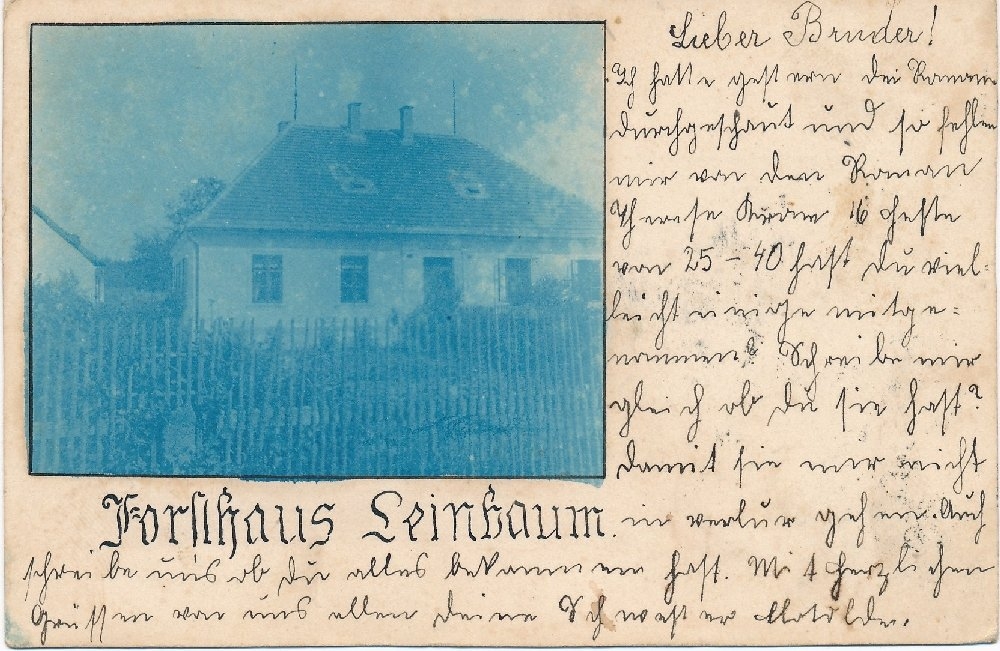 Lieber Bruder!
Ich hatte gestern dei Roman
durchgeschaut und so fehlen
mir von dem Roman
Therese Krone 16 Hefte
von 25 – 40 hast du viel-
leicht einige mitge-
nommen? Schreibe mir
gleich ob du sie hast?
damit sie mir nicht
in verlur gehen. Auch
schreibe uns ob du alles bekommen hast. Mit herzlichen
Grüssen von uns allen deine Schwester Motilde.
Forsthaus Leinbaum.